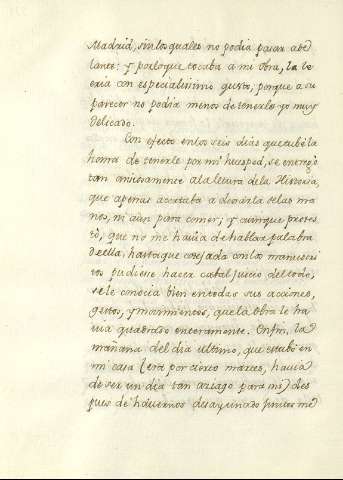 Madrid, sin los quales no podia pasar ade
lante: y por lo que tocaba a mi obra, la le
eria con especialissimo gusto, porque a su
parecer no podia menos de tenerlo yo muy
delicado.
Con efecto en los seis dias que tube la
honra de tenerle por mi huesped, se entregò
tan ansiosamente a la letura de la Historia,
que apenas acertaba a dexarla de las ma
nos, ni aun para comer; y aunque protes
tò, que no me havia de hablar palabra
de ella, hasta que cotejada con los manuscri
tos pudiesse hacer cabal juicio del todo,
se le conocia bien en todas sus acciones,
gestos, y movimientos, que la obra le ha
via quadrado enteramente. En fin, la
mañana del dia ultimo, que estubo en
mi casa (era por cierto martes, havia
de ser un dia tan aziago para mi) des
pues de havernos desayunado juntos me